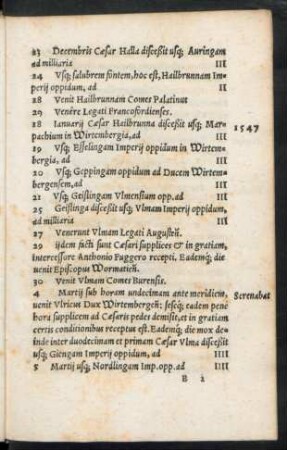 23 Decembris Cæsar Halla disceßit usq; Auringam
ad milliaria III
24 Vsq; salubrem fontem, hoc est, Hailbrunnam Im-
perij oppidum, ad II
28 Venit Hailbrunnam Comes Palatinus
29 Venére Legati Francofordienses.
18 Ianuarij Cæsar Hailbrunna discessit usq; Mar-
pachium in Wirtembergia, ad III
1547
19 Vsq; Esselingam Imperij oppidum in Wirtem-
bergia, ad III
20 Vsq; Geppingam oppidum ad Ducem Wirtem-
bergensem, ad III
21 Vsq; Geislingam Vlmensium opp. ad II
25 Geislinga discessit usq; Vlmam Imperij oppidum,
ad milliaria III
27 Venerunt Vlmam Legati Augustij.
29 ijdem facti sunt Cæsari supplices & in gratiam,
intercessore Anthonio Fuggero recepti. Eademq; die
uenit Episcopus Wormatien.
30 Venit Vlmam Comes Burensis.
4 Martij sub horam undecimam ante meridiem,
Serenabat
uenit Vlricus Dux Wirtembergen: seseq; eadem pene
hora supplicem ad Cæsaris pedes demisit, et in gratiam
certis conditionibus receptus est. Eademq; die mox de-
inde inter duodecimam et primam Cæsar Vlma discessit
usq; Giengam Imperij oppidum, ad IIII
5 Martij usq; Nordlingam Imp. opp. ad
B 2